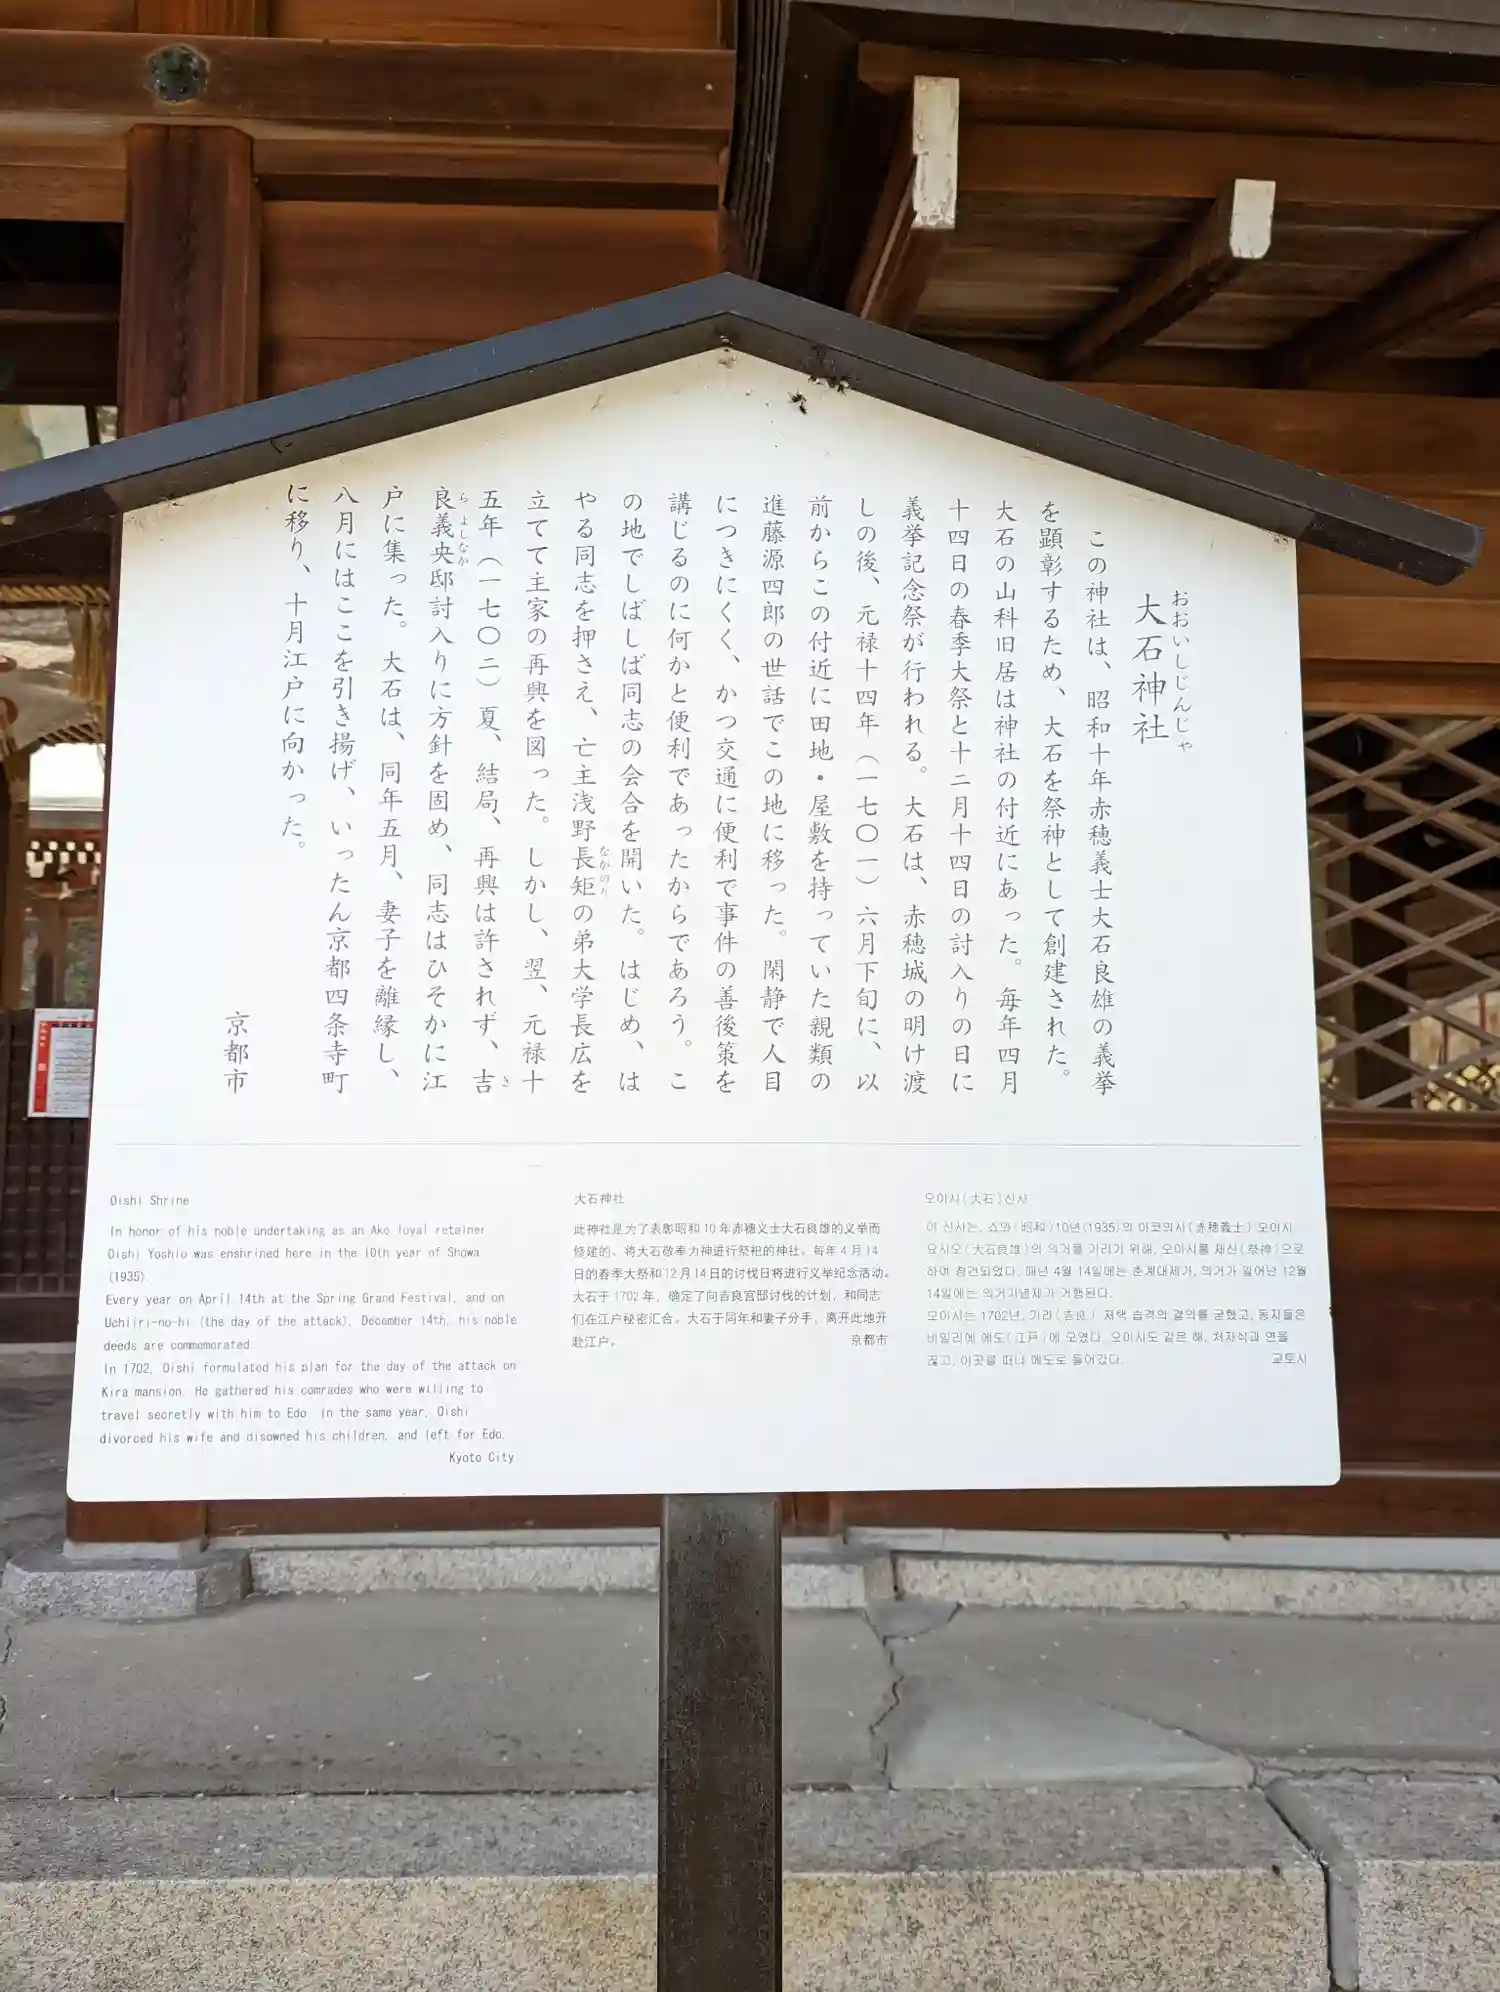 大石神社
おおいしじんじゃ
この神社は、昭和十年赤穂義士大石良雄の義挙
を顕彰するため、大石を祭神として創建された。
大石の山科旧居は神社の付近にあった。毎年四月
十四日の春季大祭と十二月十四日の討入りの日に
義挙記念祭が行われる。大石は、赤穂城の明け渡
しの後、元禄十四年（一七〇一）六月下旬に、以
前からこの付近に田地・屋敷を持っていた親類の
進藤源四郎の世話でこの地に移った。閑静で人目
につきにくく、かつ交通に便利で事件の善後策を
講じるのに何かと便利であったからであろう。こ
の地でしばしば同志の会合を開いた。はじめ、は
やる同志を押さえ、亡主浅野長矩の弟大学長広を
ながのり
立てて主家の再興を図った。しかし、翌、元禄十
五年（一七〇二）夏、結局、再興は許されず、吉
き
良義央邸討入りに方針を固め、同志はひそかに江
らよしなか
戸に集った。大石は、同年五月、妻子を離縁し、
八月にはここを引き揚げ、いったん京都四条寺町
に移り、十月江戸に向かった。
京都市
Oishi Shrine
In honor of his noble undertaking as an Ako loyal retainer
Oishi Yoshio was enshrined here in the 10th year of Showa
(1935)
Every year on April 14th at the Spring Grand Festival, and on
Uchiiri-no-hi (the day of the attack), December 14th, his noble
deeds are commemorated.
In 1702, Oishi formulated his plan for the day of the attack on
Kira mansion. He gathered his comrades who were willing to
travel secretly with him to Edo in the same year, Oishi
divorced his wife and disowned his children, and left for Edo.
Kyoto City
大石神社
此神社是为了表彰昭和10年赤穗义士大石良雄的义举而
修建的、将大石敬奉为神进行祭祀的神社。每年4月14
日的春季大祭和12月14日的讨伐日将进行义举纪念活动。
大石于1702年，确定了向吉良宫邸讨伐的计划，和同志
们在江户秘密汇合。大石于同年和妻子分手，离开此地开
赴江户。
京都市
오이시(大石)신사
이 신사는, 쇼와(昭和)10년(1935)의 아코의사(赤穂義士) 오이시
요시오(大石良雄)의 의거를 기리기 위해, 오이시를 제신(祭神)으로
하여 창건되었다. 매년 4월 14일에는 춘계대제가, 의거가 일어난 12월
14일에는 의거기념제가 거행된다.
오이시는 1702년, 기라(吉良) 저택 습격의 결의를 굳혔고, 동지들은
비밀리에 에도(江戸)에 모였다. 오이시도 같은 해, 처자식과 연을
끊고, 이곳을 떠나 에도로 들어갔다.
교토시